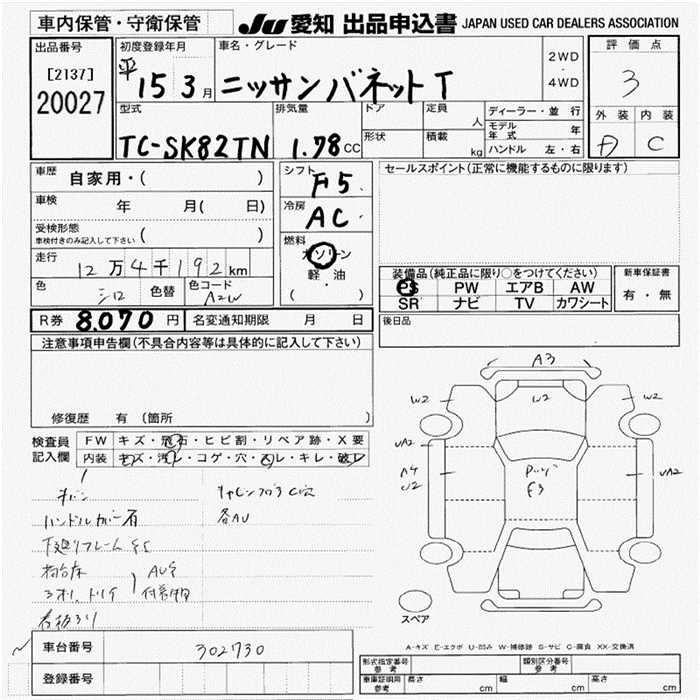 車内保管・守衛保管 JU 愛知 出品申込書 JAPAN USED CAR DEALERS ASSOCIATION
出品番号
[2137]
20027
初度登録年月
平15 3月
車名・グレード
ニッサンバネットT
2WD
・
4WD
評価点
3
外装 内装
D C
型式
TC-SK82TN
排気量
1.78 CC
ドア
形状
定員
人
積載
kg
ディーラー・並行
モデル年式 年
ハンドル 左・右
車歴 自家用・( )
車検 年 月( 日)
受検形態
車検付きのみ記入して下さい ( )
走行 12万4千192km
色 シロ 色替 色コード A2W
シフト F5
冷房 AC
燃料
ガソリン
軽・油
( )
セールスポイント(正常に機能するものに限ります)
装備品(純正品に限り○をつけてください)
PS PW エアB AW
SR ナビ TV カワシート
新車保証書
有・無
R券 8.070円 名変通知期限 月 日
後日品
注意事項申告欄(不具合内容等は具体的に記入して下さい)
修復歴 有(箇所 )
検査員
記入欄
FW キズ・飛石・ヒビ割・リペア跡・X要
内装 キズ・汚レ・コゲ・穴・スレ・キレ・破レ
ハンドルカバー有
各AU
A3
W2 W2 W2
UA2
A4
U2
UA2
F3
スペア
A-キズ E-エクボ U-凹み W-補修跡 S-サビ C-腐食 XX-交換済
車台番号 302730
登録番号
形式指定番号
参考
類別区分番号
参考
車庫証明用
参考
長さ cm 幅 cm 高さ cm